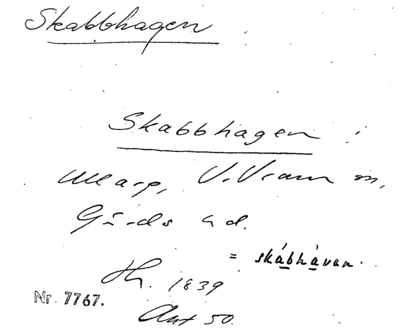 Skabbhagen
Skabbhagen :
Ullarp, V. Vram sn,
Gärds hd.
= skábhàvan.
1839
Nr. 7767.
Akt 50.